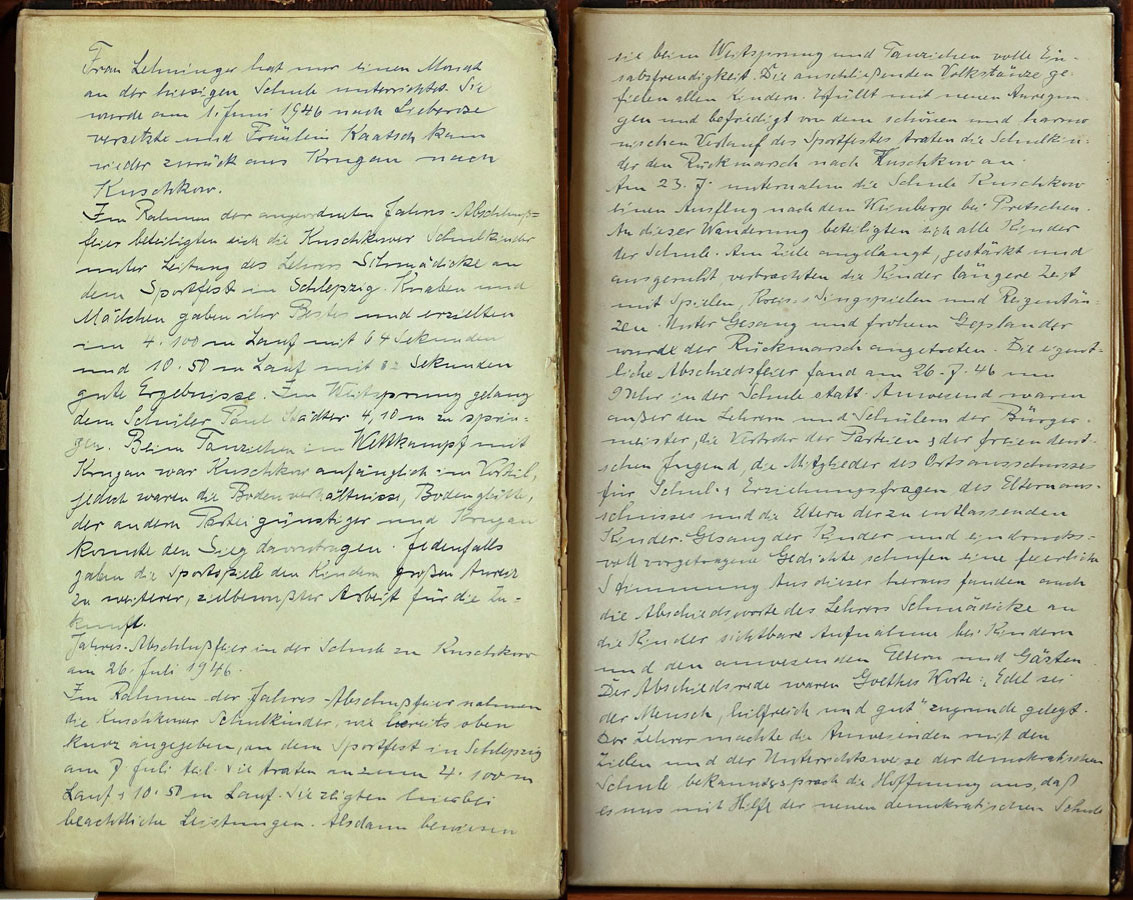 Frau Lehninger hat nur einen Monat
an der hiesigen Schule unterrichtet. Sie
wurde am 1. Juni 1946 nach Lieberose
versetzt und Fräulein Kaatsch kam
wieder zurück aus Krugau nach
Kuschkow.
Im Rahmen der angeordneten Jahres-Abschluß=
feier beteiligten sich die Kuschkower Schulkinder
unter Leitung des Lehrers Schmädicke an
dem Sportfest in Schlepzig. Knaben und
Mädchen gaben ihr Bestes und erzielten
im 4. 100 m Lauf mit 64 Sekunden
und 10. 50 m Lauf mit Sekunden
gute Ergebnisse. Im Weitsprung gelang
dem Schüler Paul Städter 4,10 m zu sprin-
gen. Beim Tauziehen im Wettkampf mit
Krugau war Kuschkow anfänglich im Vorteil,
jedoch waren die Bodenverhältnisse,
der andern Partei günstiger und Krugau
konnte den Sieg davontragen. Jedenfalls
gaben die Sportspiele den Kindern großen Anreiz
zu weiterer, zielbewußter Arbeit für die Zu-
kunft.
Jahres-Abschlußfeier in der Schule zu Kuschkow
am 26. Juli 1946.
Im Rahmen der Jahres-Abschußfeier nahmen
die Kuschkower Schulkinder, wie bereits oben
kurz angegeben, an dem Sportfest in Schlepzig
am 7 Juli teil. Sie traten an zum 4. 100 m
Lauf 10. 50 m Lauf. Sie zeigten hierbei
beachtliche Leistungen. Alsdann bewiesen
sie beim Weitsprung und Tauziehen volle Ein-
satzfreudigkeit. Die anschließenden Volkstänze ge-
fielen allen Kindern. Erfüllt mit neuen Anregun-
gen und befriedigt von dem schönen und harmo
nischen Verlauf des Sportfestes traten die Schulkin-
der den Rückmarsch nach Kuschkow an.
Am 23. 7. unternahm die Schule Kuschkow
einen Ausflug nach dem Weinberge bei Pretschen.
An dieser Wanderung beteiligten sich alle Kinder
der Schule. Am Ziele angelangt, gestärkt und
ausgeruht verbrachten die Kinder längere Zeit
mit Spielen, Kreis- Singspielen und Reigentän-
zen. Unter Gesang und frohem Geplauder
wurde der Rückmarsch angetreten. Die eigent-
liche Abschiedsfeier fand am 26. 7. 46 um
9 Uhr in der Schule statt. Anwesend waren
außer den Lehrern und Schülern der Bürger-
meister, die Vertreter der Parteien der freien deut-
schen Jugend, die Mitglieder des Ortsausschusses
für Schul- Erziehungsfragen des Elternaus-
schusses und die Eltern der zu entlassenden
Kinder. Gesang der Kinder und eindrucks-
voll vorgetragene Gedichte schufen eine feierliche
Stimmung. Aus dieser heraus fanden auch
die Abschiedsworte des Lehrers Schmädicke an
die Kinder sichtbare Aufnahme bei Kindern
und den anwesenden Eltern und Gästen.
Der Abschiedsrede waren Goethes Worte: „Edel sei
der Mensch, hilfreich und gut“ zugrunde gelegt.
Der Lehrer machte die Anwesenden mit den
Zielen und der Unterrichtsweise der demokratischen
Schule bekannt sprach die Hoffnung aus, daß
es uns mit Hilfe der neuen demokratischen Schule